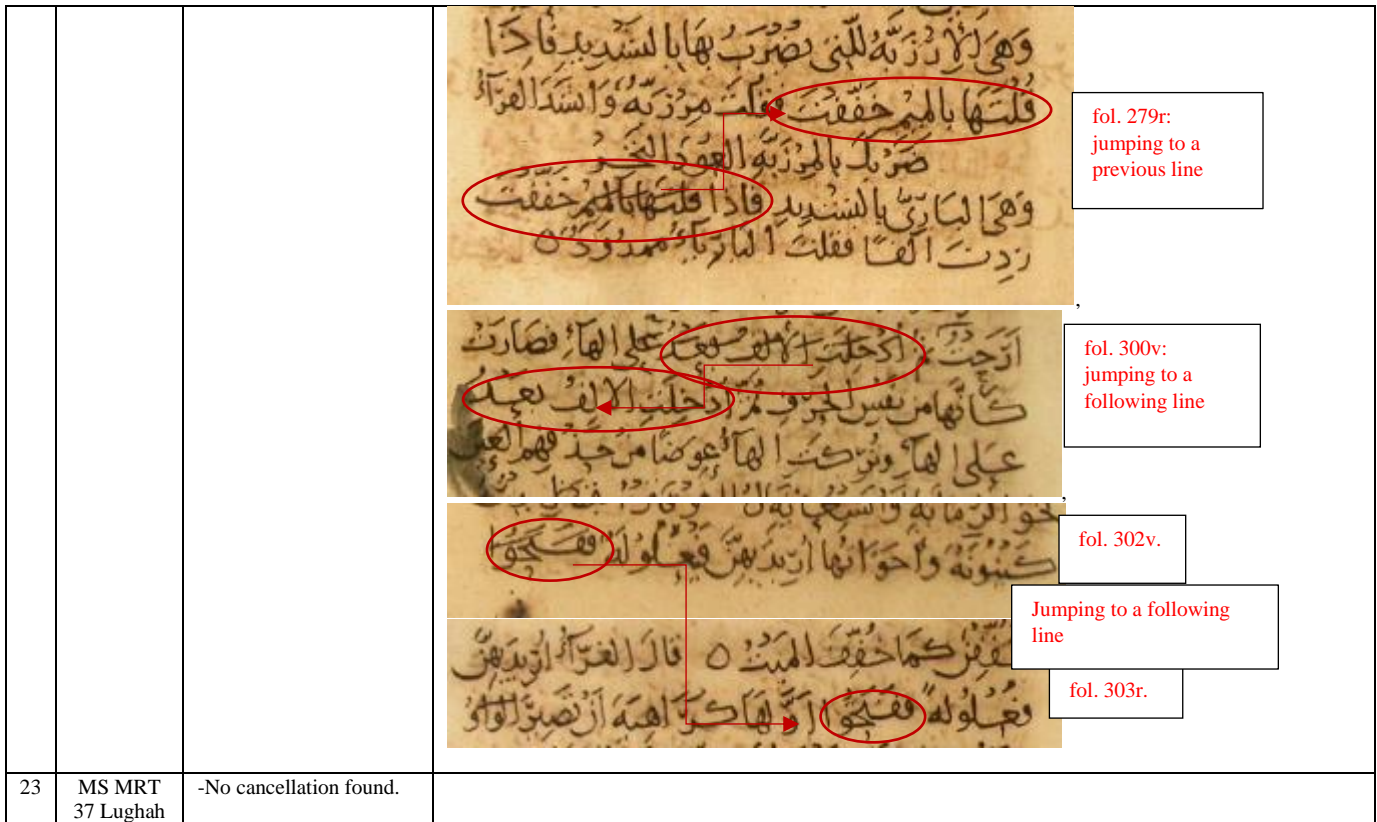 وهي الإرزبّة للّتي تضرب بها بالتشديد فاذا
قلتها بالميم خفّفت فقلت مرزبة وانشد الفرّآء
ضربك بالمرزبة العود النخر
وهي الباريّ بالتشديد فاذا قلتها بالميم خففت
زدت الفًا فقلت البارِيآء ممدود ٥
fol. 279r:
jumping to a
previous line
,
ادخلت الالف بعد على الهآء فصارت
كأنها من نفس الحرف ثم ادخلت الالف بعد
على الهآء وتركت الهآء عوضًا من حذفهم العين
fol. 300v:
jumping to a
following line
,
كينونه واخواتها اريد بهن فعلولة ففتحوا
fol. 302v.
Jumping to a following
line
كما خفّف الميت ٥ قال الفرّآء اريد بهنّ
فعلولة ففتحوا اوّلها كراهية ان تصير الواو
fol. 303r.
23 MS MRT -No cancellation found.
37 Lughah